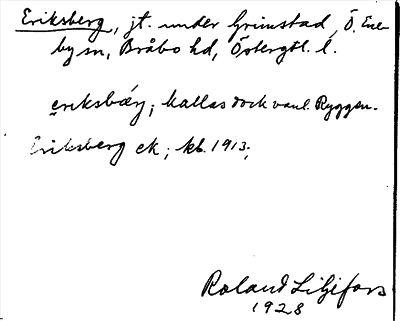 Eriksberg, jt. under Grimstad, Ö. Ene-
by sn, Bråbo hd, Östergtl. l.
eriksbærj; kallas dock vanl. Ryggen.
Eriksberg ek; kb. 1913;
Roland Liljefors
1928